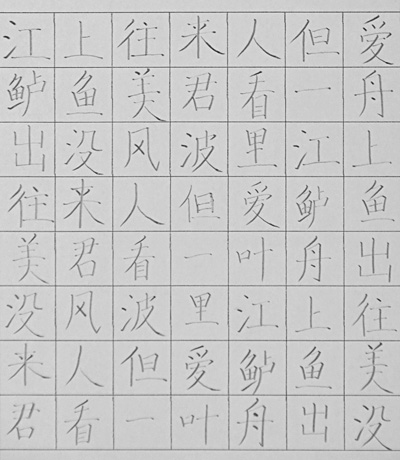 江上往来人但爱
鲈鱼美君看一舟
出没风波里江上
往来人但爱鲈鱼
美君看一叶舟出
没风波里江上往
来人但爱鲈鱼美
君看一叶舟出没